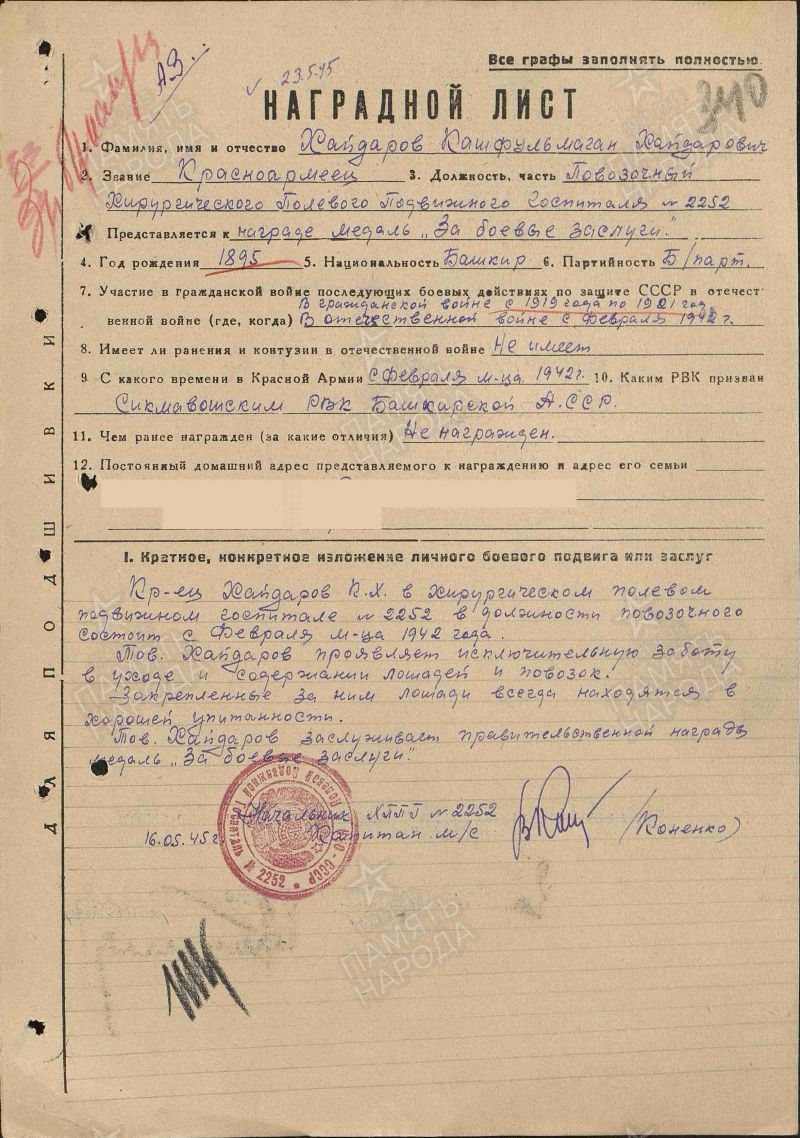 Все графы заполнять полностью.
АЗ.
23.5.45
340
НАГРАДНОЙ ЛИСТ
1. Фамилия, имя и отчество Хайдаров Кашфульмаган Хайдарович
2. Звание Красноармеец 3. Должность, часть Повозочный
Хирургического Полевого Подвижного Госпиталя № 2252
Представляется к награде медаль „За боевые заслуги."
4. Год рождения 1895 5. Национальность Башкир 6. Партийность Б/парт.
7. Участие в гражданской войне последующих боевых действиях по защите СССР в отечест
В гражданской войне с 1919 года по 1921 год
венной войне (где, когда) В отечественной войне с февраля 1942 г.
8. Имеет ли ранения и контузии в отечественной войне Не имеет
9 С какого времени в Красной Армии с февраля м-ца 1942 г. 10. Каким РВК призван
Сикмавошским РВК Башкирской А.ССР.
11. Чем ранее награжден (за какие отличия) Не награжден.
12. Постоянный домашний адрес представляемого к награждению и адрес его семьи
1. Краткое, конкретное изложение личного боевого подвига или заслуг
Кр-ец Хайдаров К.Х. в хирургическом полевом
подвижном госпитале № 2252 в должности повозочного
состоит с февраля м-ца 1942 года.
Тов. Хайдаров проявляет исключительную заботу
в уходе и содержании лошадей и повозок.
Закрепленные за ним лошади всегда находятся в
хорошей упитанности.
Тов. Хайдаров заслуживает правительственной награды
медаль „За боевые заслуги".
Начальник ХППГ № 2252
16.05.45 г. Капитан м/с (Коненко)
НКО - СССР
Полевой Подвижной Госпиталь № 2252
ДЛЯ ПОДШИВКИ
ПАМЯТЬ НАРОДА